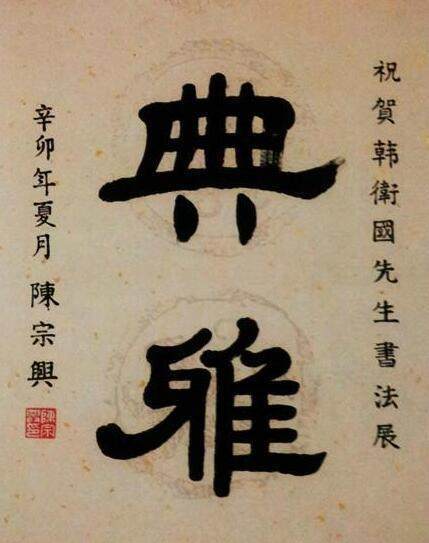 祝賀韩衛國先生書法展
典雅
辛卯年夏月 陳宗興
陳宗興印